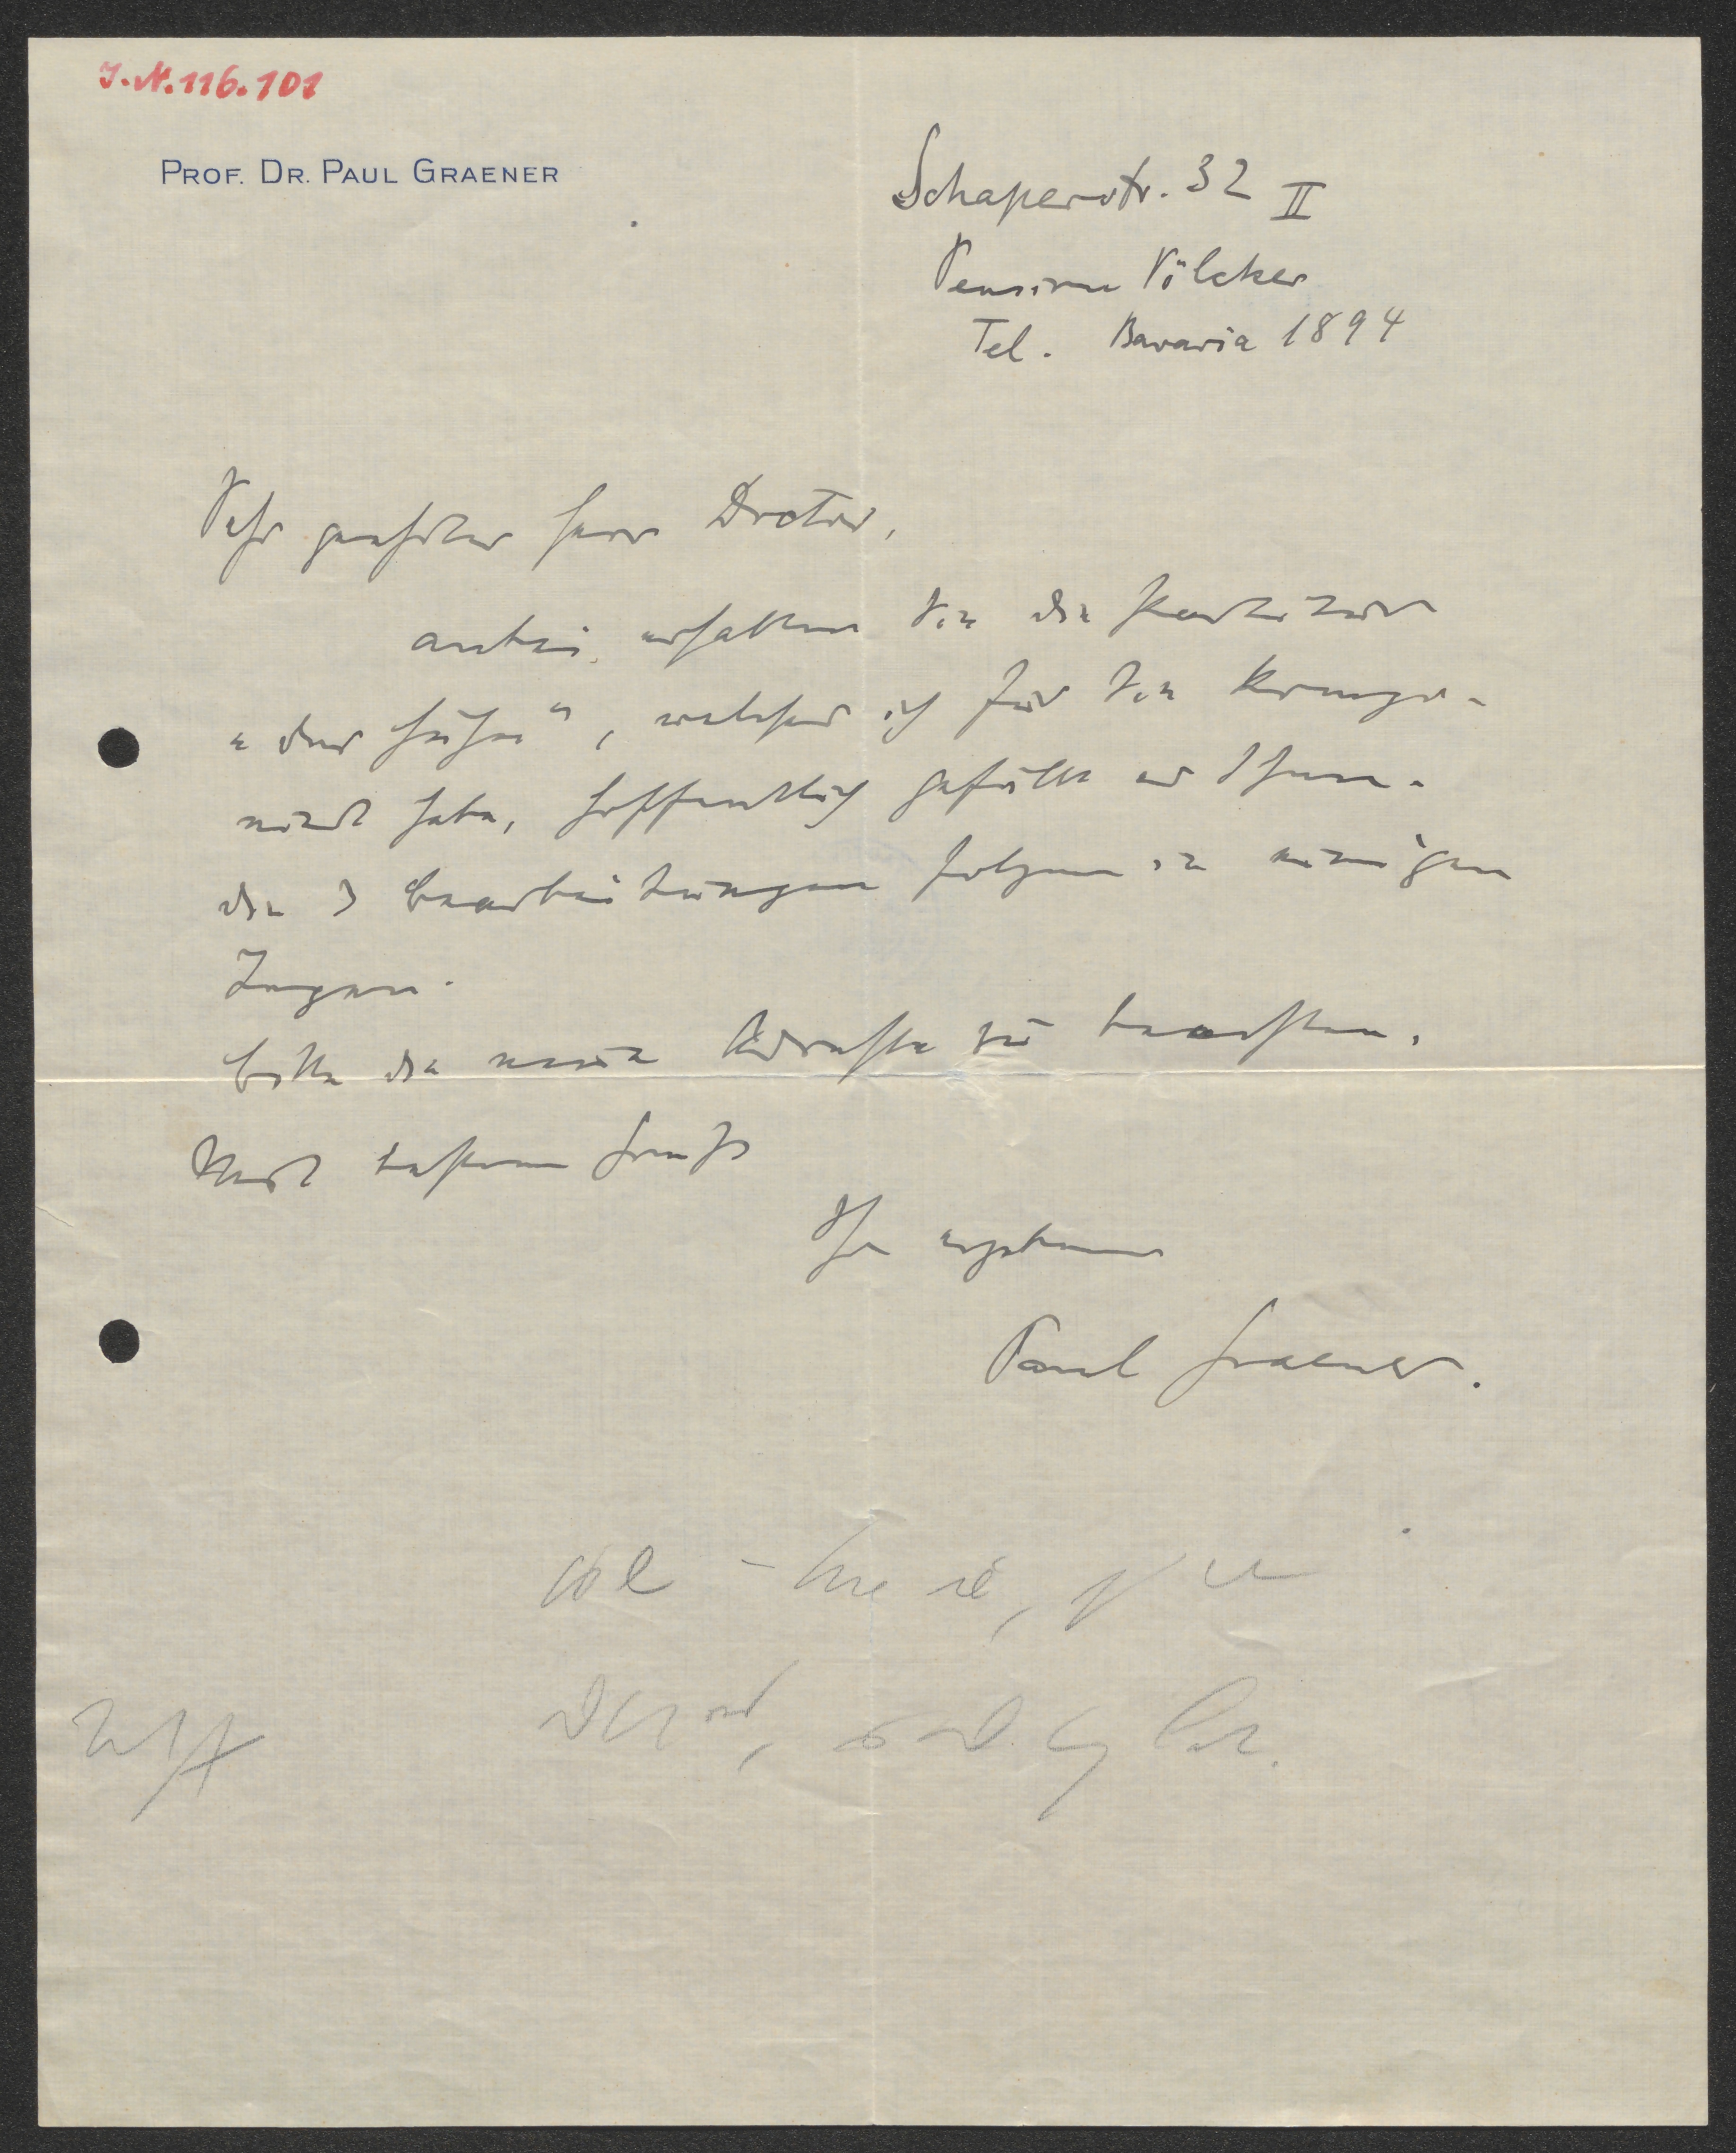 I.N. 116.101
PROF. DR. PAUL GRAENER
Schaperstr. 32 II
Pension Völcker
Tel. Bavaria 1894
Sehr geehrter Herr Doctor,
anbei erhalten Sie die Partitur
"der", welchen ich für Sie kompo-
niert habe, hoffentlich gefällt er Ihnen.
die 3 Bearbeitungen folgen in einigen
Tagen.
bitte die neue Adresse zu beachten.
Mit bestem Gruß
Ihr ergebener
Paul Graener.